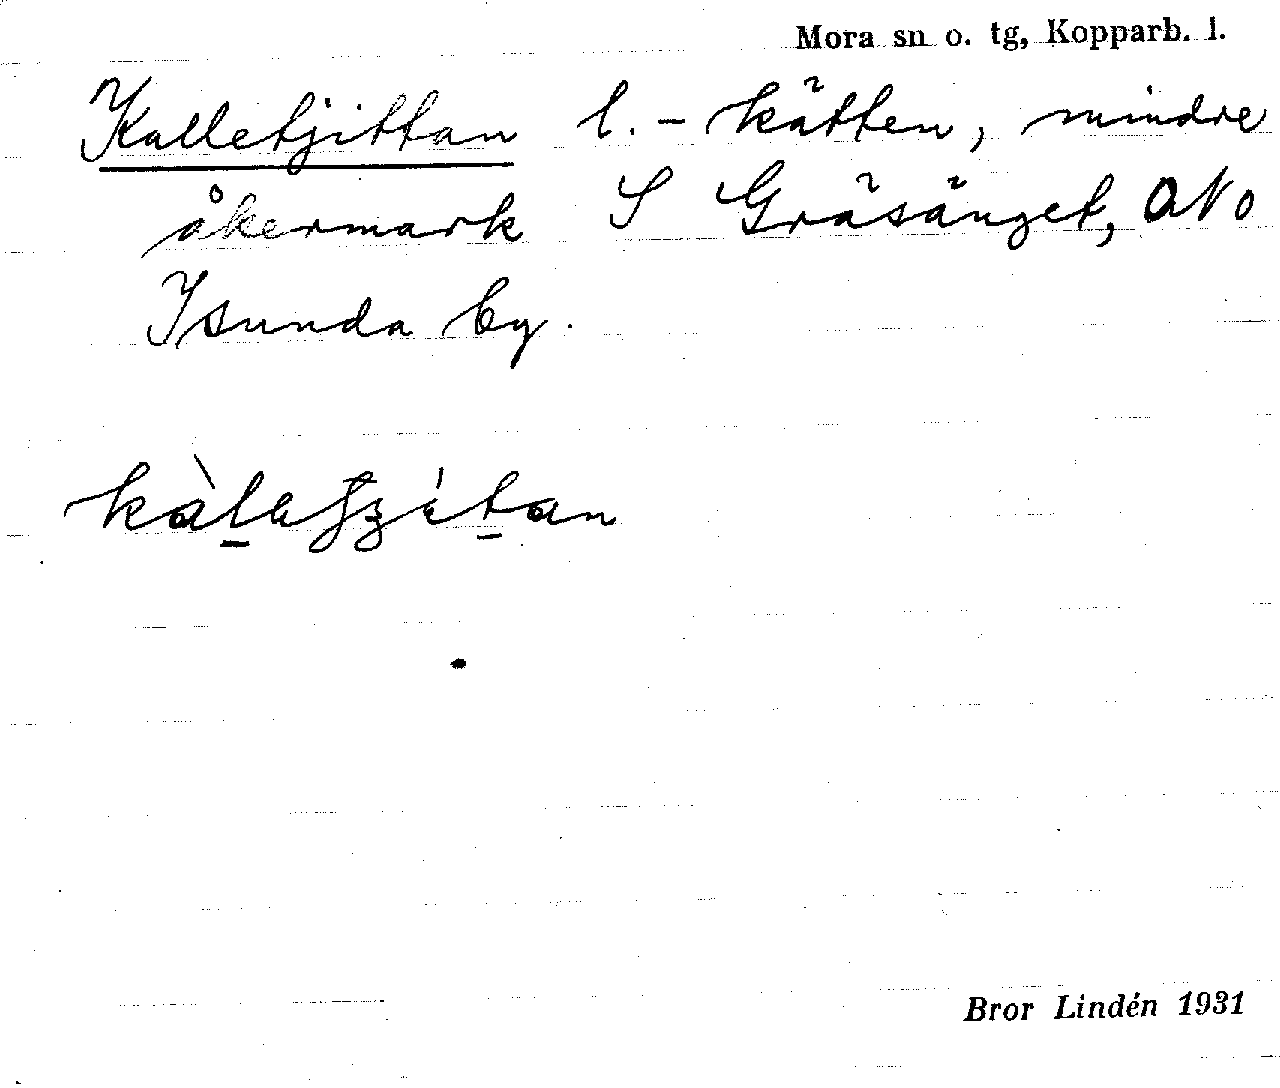 Mora sn o. tg, Kopparb. l.
Kalletjittan l. -kätten, mindre
åkermark S Gräsänget, ONO
Isunda by.
Bror Lindén 1931